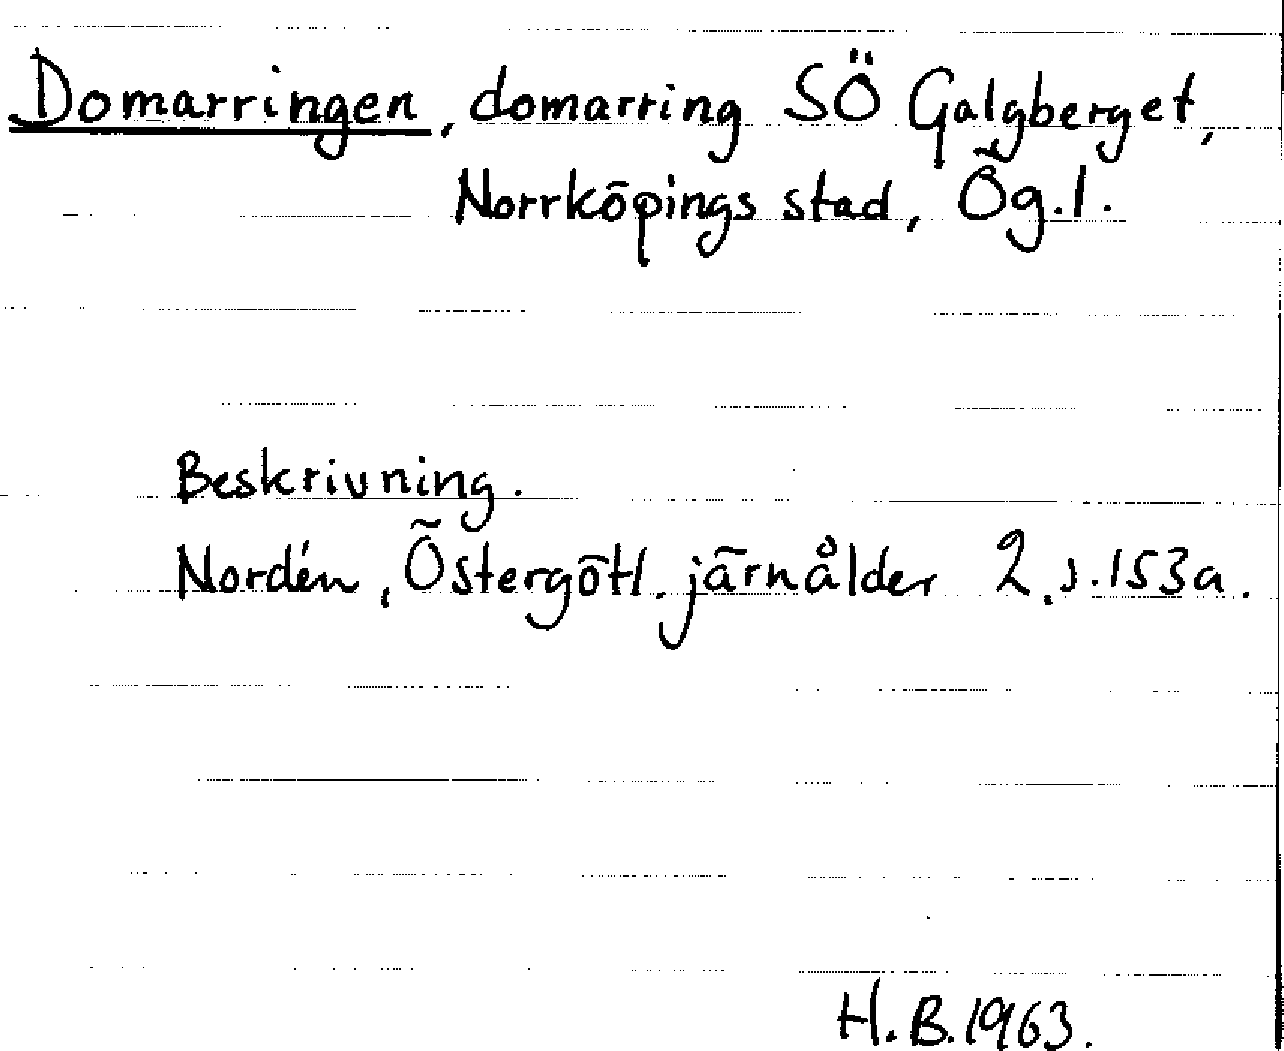 Domarringen, domarring SÖ Galgberget,
Norrköpings stad, Ög.l.
Beskrivning.
Nordén, Östergötl. järnålder 2. s. 153a.
H.B. 1963.